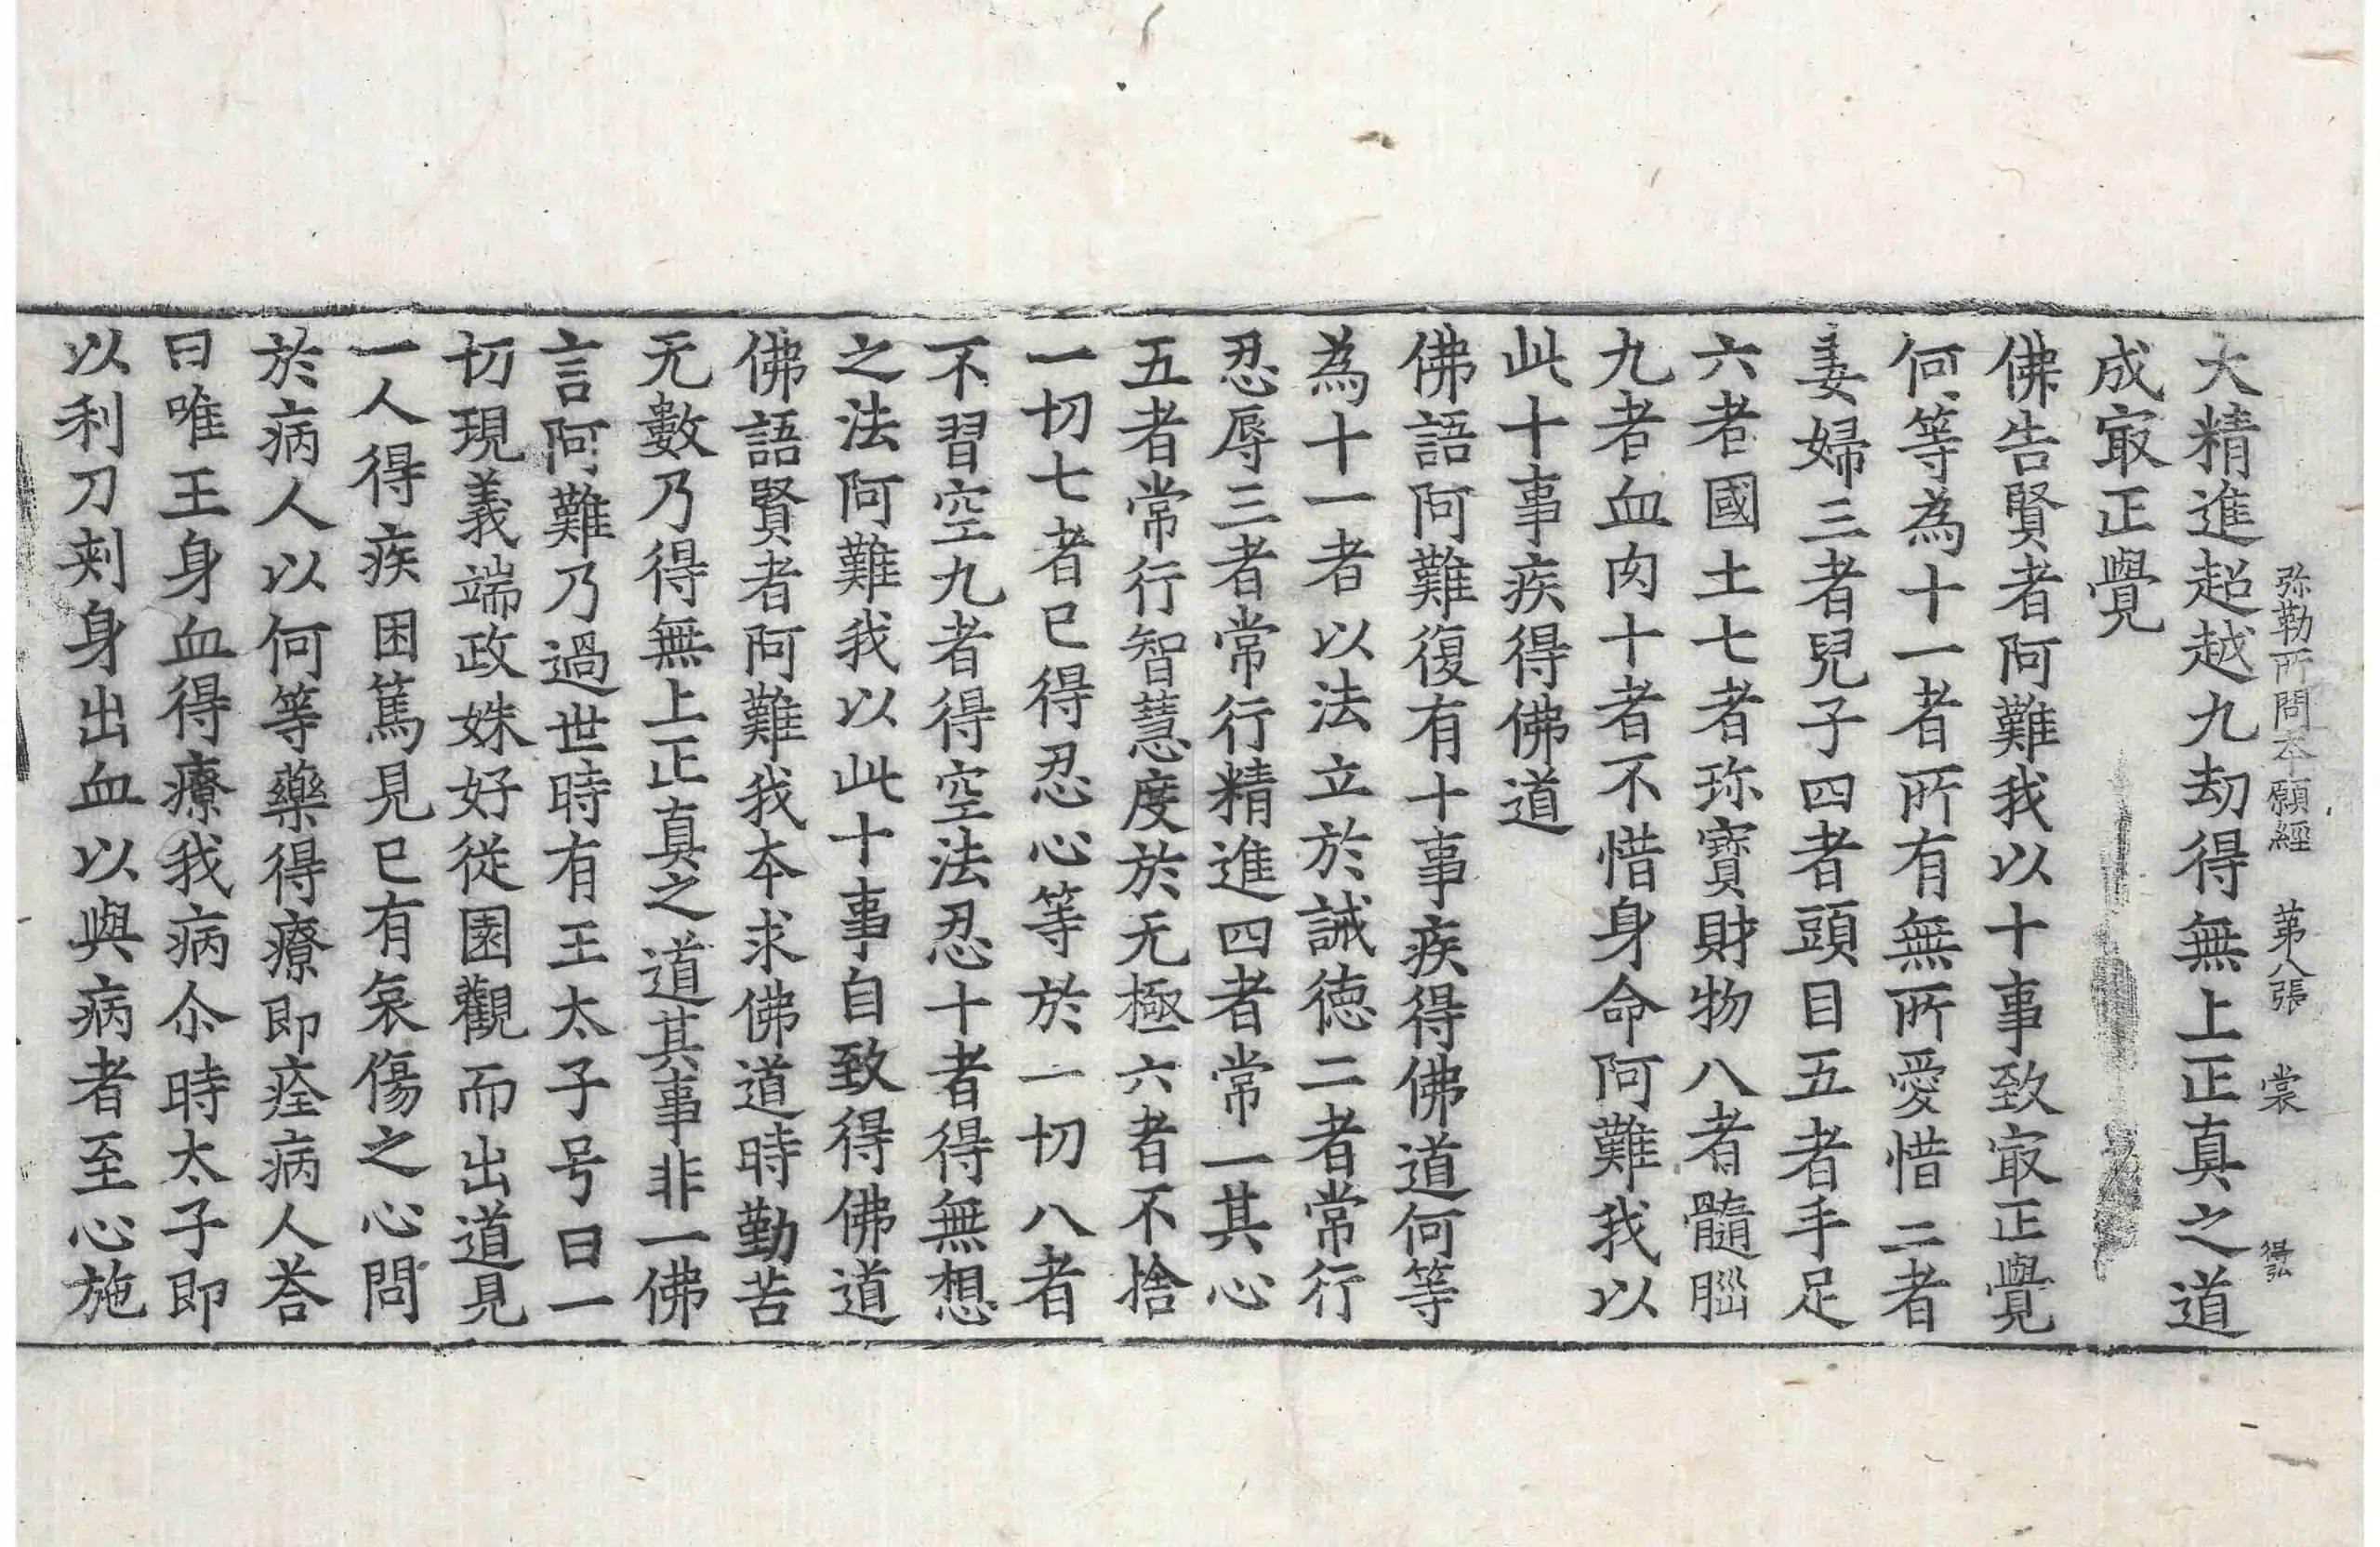 弥勒所問本願經 第八張 裳 得弘
大精進超越九劫得無上正真之道
成㝡正覺
佛告賢者阿難我以十事致㝡正覺
何等為十一者所有無所愛惜二者
妻婦三者兒子四者頭目五者手足
六者國土七者珎寶財物八者髓𦛁
九者血肉十者不惜身命阿難我以
此十事疾得佛道
佛語阿難復有十事疾得佛道何等
為十一者以法立於誡德二者常行
忍辱三者常行精進四者常一其心
五者常行智慧度於无極六者不捨
一切七者已得忍心等於一切八者
不習空九者得空法忍十者得無想
之法阿難我以此十事自致得佛道
佛語賢者阿難我本求佛道時勤苦
无數乃得無上正真之道其事非一佛
言阿難乃過世時有王太子号曰一
切現義端政姝好從園觀而出道見
一人得疾困篤見已有哀傷之心問
於病人以何等藥得療即痊病人荅
曰唯王身血得療我病尒時太子即
以利刀刾身出血以與病者至心施